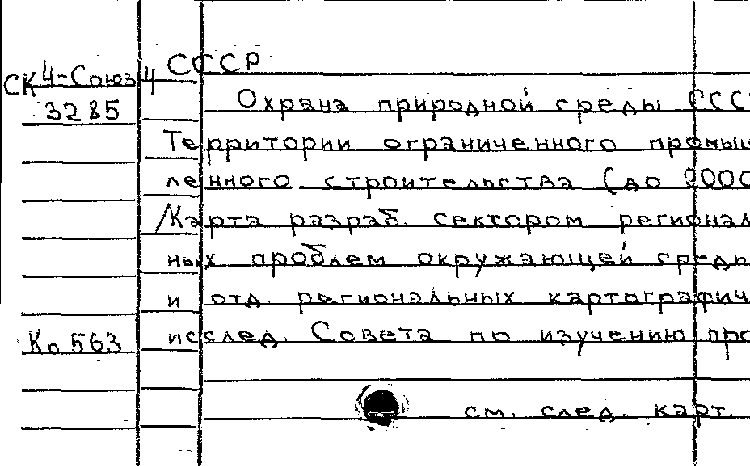 СССР
СК 4-Союз 4
3285
Охрана природной среды ССС
Территории ограниченного промыш
ленного строительства (до 2000
/Карта разраб. сектором региональ
ных проблем окружающей среды
и отд. региональных картографич
исслед. Совета по изучению про
Кп 563
см. след. карт.